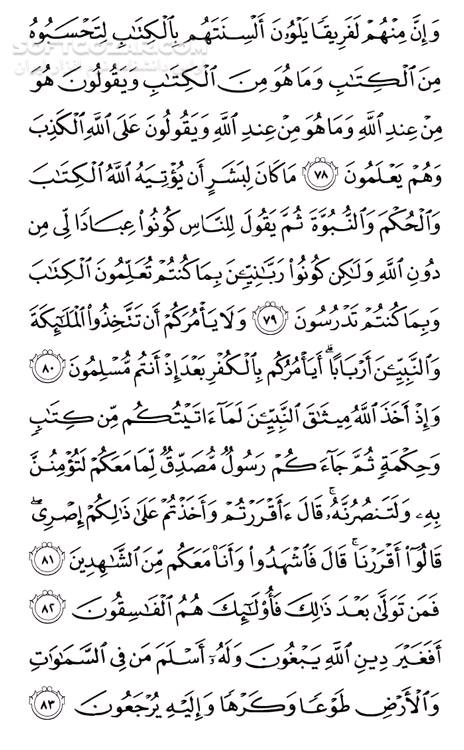 وَإِنَّ مِنۡهُمۡ لَفَرِيقٗا يَلۡوُۥنَ أَلۡسِنَتَهُم بِٱلۡكِتَٰبِ لِتَحۡسَبُوهُ
مِنَ ٱلۡكِتَٰبِ وَمَا هُوَ مِنَ ٱلۡكِتَٰبِ وَيَقُولُونَ هُوَ
مِنۡ عِندِ ٱللَّهِ وَمَا هُوَ مِنۡ عِندِ ٱللَّهِ وَيَقُولُونَ عَلَى ٱللَّهِ ٱلۡكَذِبَ
وَهُمۡ يَعۡلَمُونَ ٧٨ مَا كَانَ لِبَشَرٍ أَن يُؤۡتِيَهُ ٱللَّهُ ٱلۡكِتَٰبَ
وَٱلۡحُكۡمَ وَٱلنُّبُوَّةَ ثُمَّ يَقُولَ لِلنَّاسِ كُونُواْ عِبَادٗا لِّي مِن
دُونِ ٱللَّهِ وَلَٰكِن كُونُواْ رَبَّٰنِيِّـۧنَ بِمَا كُنتُمۡ تُعَلِّمُونَ ٱلۡكِتَٰبَ
وَبِمَا كُنتُمۡ تَدۡرُسُونَ ٧٩ وَلَا يَأۡمُرَكُمۡ أَن تَتَّخِذُواْ ٱلۡمَلَٰٓئِكَةَ
وَٱلنَّبِيِّـۧنَ أَرۡبَابًاۗ أَيَأۡمُرُكُم بِٱلۡكُفۡرِ بَعۡدَ إِذۡ أَنتُم مُّسۡلِمُونَ ٨٠
وَإِذۡ أَخَذَ ٱللَّهُ مِيثَٰقَ ٱلنَّبِيِّـۧنَ لَمَآ ءَاتَيۡتُكُم مِّن كِتَٰبٖ
وَحِكۡمَةٖ ثُمَّ جَآءَكُمۡ رَسُولٞ مُّصَدِّقٞ لِّمَا مَعَكُمۡ لَتُؤۡمِنُنَّ
بِهِۦ وَلَتَنصُرُنَّهُۥۚ قَالَ ءَأَقۡرَرۡتُمۡ وَأَخَذۡتُمۡ عَلَىٰ ذَٰلِكُمۡ إِصۡرِيۖ
قَالُوٓاْ أَقۡرَرۡنَاۚ قَالَ فَٱشۡهَدُواْ وَأَنَا۠ مَعَكُم مِّنَ ٱلشَّٰهِدِينَ ٨١
فَمَن تَوَلَّىٰ بَعۡدَ ذَٰلِكَ فَأُوْلَٰٓئِكَ هُمُ ٱلۡفَٰسِقُونَ ٨٢
أَفَغَيۡرَ دِينِ ٱللَّهِ يَبۡغُونَ وَلَهُۥٓ أَسۡلَمَ مَن فِي ٱلسَّمَٰوَٰتِ
وَٱلۡأَرۡضِ طَوۡعٗا وَكَرۡهٗا وَإِلَيۡهِ يُرۡجَعُونَ ٨٣